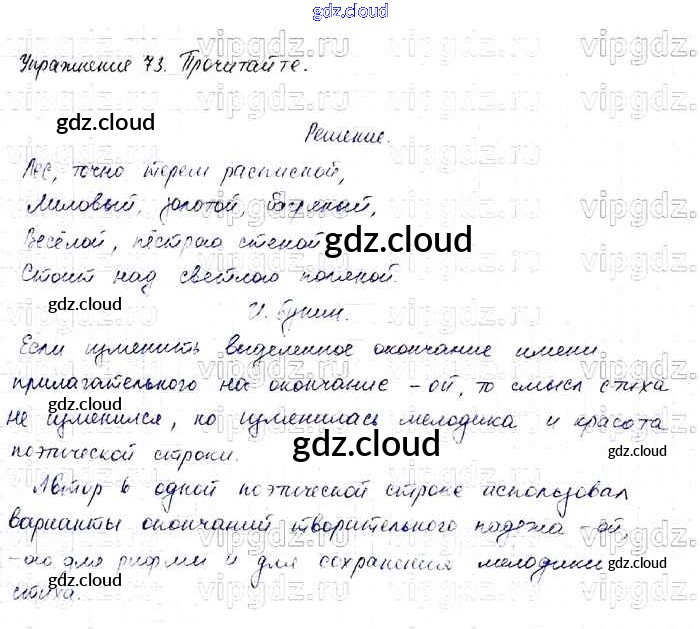 gdz.cloud
Упражнение 73. Прочитайте.
gdz.cloud
Решение.
Лес, точно терем расписной,
Лиловый, золотой, багряный,
Весёлой, пёстрою стеной
gdz.cloud
Стоит над светлою поляной.
gdz.cloud
И. Бунин.
Если изменить выделенное окончание имени
прилагательного на окончание -ой, то смысл стиха
gdz.cloud
не изменился, но изменилась мелодика и красота
поэтической строки.
gdz.cloud
Автор в одной поэтической строке использовал
варианты окончаний творительного падежа -ой,
-ою для рифмы и для сохранения мелодики
gdz.cloud
gdz.cloud
стиха.